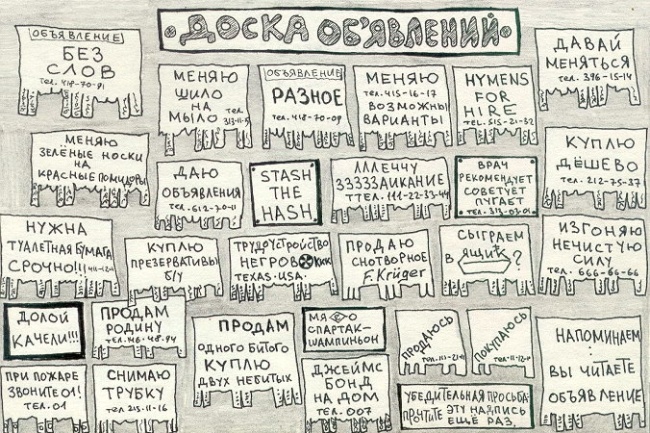 ·ДОСКА ОБ'ЯВЛЕНИЙ·
ОБЪЯВЛЕНИЕ
БЕЗ
СЛОВ
тел. 418-70-91
МЕНЯЮ
ШИЛО
НА
МЫЛО тел.
313-11-5
ОБЪЯВЛЕНИЕ
РАЗНОЕ
тел. 418-70-09
МЕНЯЮ
тел. 415-16-17
ВОЗМОЖНЫ
ВАРИАНТЫ
HYMENS
FOR
HIRE
ТЕЛ. 515-21-32
ДАВАЙ
МЕНЯТЬСЯ
тел. 396-15-14
МЕНЯЮ
ЗЕЛЁНЫЕ НОСКИ
НА
КРАСНЫЕ ПОМИДОРЫ
ДАЮ
ОБЪЯВЛЕНИЯ
тел. 612-70-11
STASH
THE
HASH
ЛЛЛЕЧЧУ
ЗЗЗЗЗАИКАНИЕ
ТТЕЛ. 111-22-33-44
ВРАЧ
РЕКОМЕНДУЕТ
СОВЕТУЕТ
ПУГАЕТ
тел. 313-03-01
КУПЛЮ
ДЁШЕВО
тел. 212-75-37
НУЖНА
ТУАЛЕТНАЯ БУМАГА
СРОЧНО!!!
КУПЛЮ
ПРЕЗЕРВАТИВЫ
Б/У
ТРУДРУСТРОЙСТВО
НЕГРОВ KKK
TEXAS·USA·
ПРОДАЮ
СНОТВОРНОЕ
F. Krüger
СЫГРАЕМ
В ЯЩИК?
ИЗГОНЯЮ
НЕЧИСТУЮ
СИЛУ
тел. 666-66-66
ДОЛОЙ
КАЧЕЛИ!!!
ПРОДАМ
РОДИНУ
тел. 146-48-94
ПРОДАМ
ОДНОГО БИТОГО
КУПЛЮ
ДВУХ НЕБИТЫХ
СПАРТАК–
ШАМПИНЬОН
ПРОДАЮСЬ
ПОКУПАЮСЬ
НАПОМИНАЕМ
:
ВЫ ЧИТАЕТЕ
ОБЪЯВЛЕНИЕ
ПРИ ПОЖАРЕ
ЗВОНИТЕ 01!
ТЕЛ. 01
СНИМАЮ
ТРУБКУ
ТЕЛ 215-11-16
ДЖЕЙМС
БОНД
НА ДОМ
ТЕЛ. 007
УБЕДИТЕЛЬНАЯ ПРОСЬБА:
ПРОЧТИТЕ ЭТУ НАДПИСЬ
ЕЩЁ РАЗ.